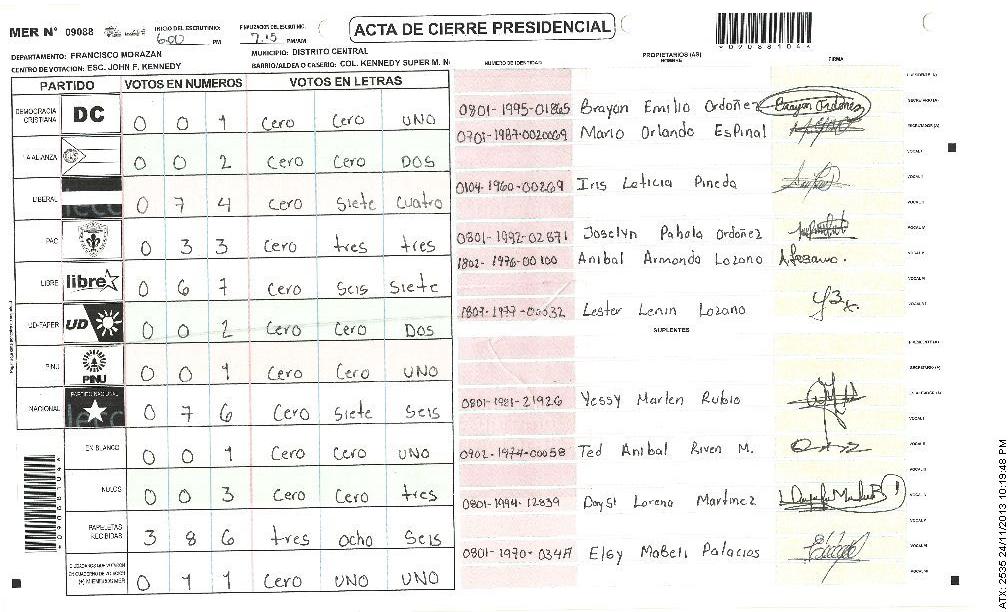 MER N° 09088
INICIO DEL ESCRUTINIO: 6:00 PM
FINALIZACION DEL ESCRUTINIO: 7:15 PM/AM
ACTA DE CIERRE PRESIDENCIAL
*09088104*
DEPARTAMENTO: FRANCISCO MORAZAN
MUNICIPIO: DISTRITO CENTRAL
CENTRO DE VOTACION: ESC. JOHN F. KENNEDY
BARRIO/ALDEA O CASERIO: COL. KENNEDY SUPER M. N
NUMERO DE IDENTIDAD
PROPIETARIOS (AS)
NOMBRE
FIRMA
PARTIDO VOTOS EN NUMEROS VOTOS EN LETRAS
DEMOCRACIA CRISTIANA DC 0 0 1 Cero Cero UNO
LA ALIANZA 0 0 2 Cero Cero DOS
LIBERAL 0 7 4 Cero Siete Cuatro
PAC 0 3 3 Cero tres tres
LIBRE libre 0 6 7 Cero Seis Siete
UD-FAPER UD 0 0 2 Cero Cero DOS
PINU PINU 0 0 1 Cero Cero UNO
NACIONAL PARTIDO NACIONAL 0 7 6 Cero Siete Seis
EN BLANCO 0 0 1 Cero Cero UNO
NULOS 0 0 3 Cero Cero tres
PAPELETAS RECIBIDAS 3 8 6 tres Ocho Seis
CIUDADANOS QUE VOTARON EN CUADERNO DE VOTACION (+) MIEMBROS MER 0 1 1 Cero UNO UNO
0801-1995-01865 Brayan Emilio Ordoñez Brayan Ordoñez
0701-1987-0020069 Mario Orlando Espinal
0104-1960-00269 Iris Leticia Pineda
0801-1992-02871 Joselyn Pahola Ordoñez
1802-1976-00100 Anibal Armando Lozano
1807-1977-00032 Lester Lenin Lozano
SUPLENTES
0801-1981-21926 Yessy Marlen Rubio
0902-1974-00058 Ted Anibal Riven M.
0801-1994-12839 Daysi Lorena Martinez
Elsy Mabeli Palacios
*09088104*
ATX: 2535 24/11/2013 10:19:48 PM